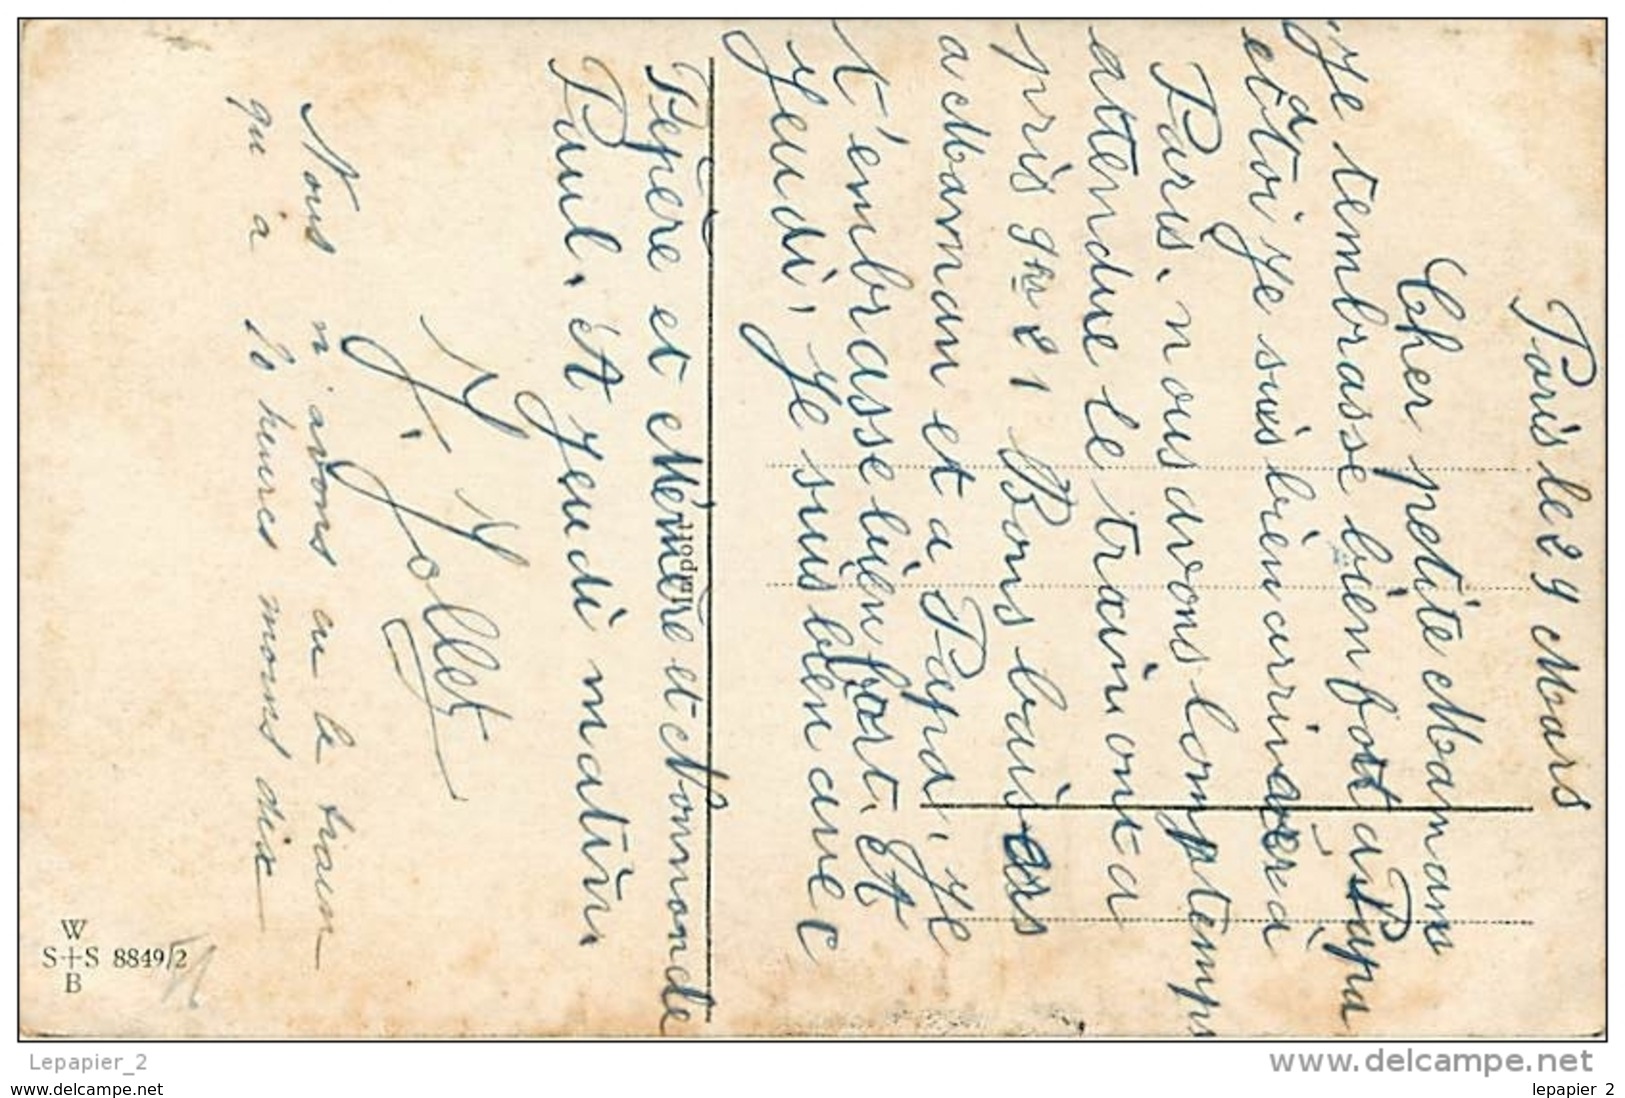 Paris le 29 Mars
Cher petite Maman
Je tembrasse bien fort a Papa
et a toi je suis bien arrivera à
Paris. nous avons lomptemps
attendue le train on ta
pris gra 21 Bons baiers
a Maman et a Papa, je
t'enbrasse bien fort. Et
jeudi, je suis bien avec
Pepere et Mémère et Nonmonde
Paul. A jeudi matin
J. Jollet
Nous n'avons eu le train
qu à 10 heures moins dix
Import
W
S+S 8849/2
B
Lepapier_2
www.delcampe.net
www.delcampe.net
lepapier_2